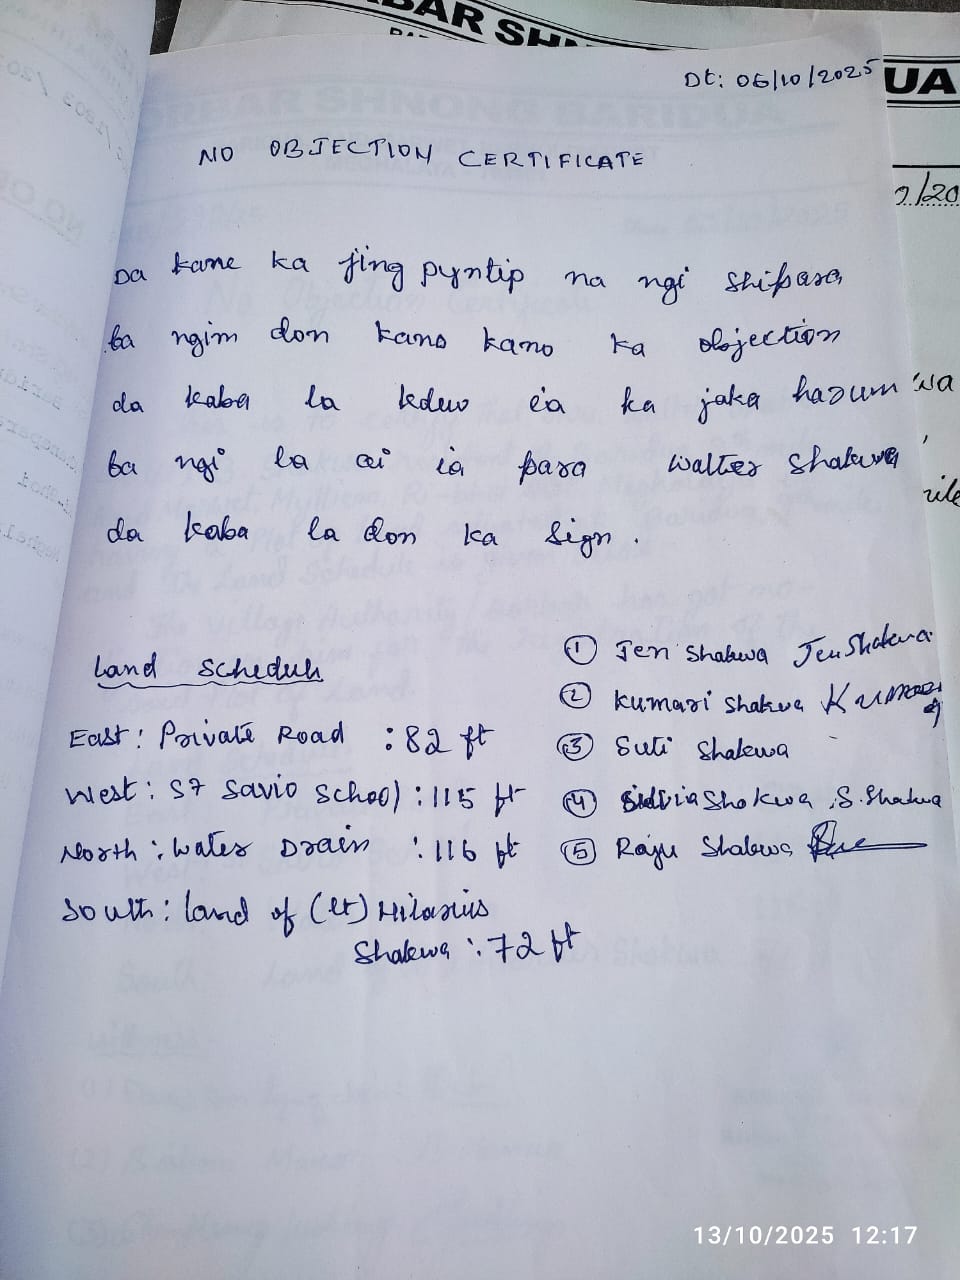 DARBAR SHN
UA
Dt: 06/10/2025
NO OBJECTION CERTIFICATE
Da kane ka jing pyntip na ngi shipara
ba ngim don kano kano ka objection
da kaba la kdew ia ka jaka hazum
ba ngi la ai ia para Walter Shakwa
da kaba la don ka sign.
Land Schedule
East: Private Road : 82 ft
West: ST Savio School : 115 ft
North: Water Drain : 116 ft
South: land of (Lt) Hilarius
Shakwa : 72 ft
① Jen Shakwa Jen Shakwa
② Kumari Shakwa Kumari
③ Suti Shakwa
④ Silvia Shakwa S. Shakwa
⑤ Raju Shakwa
13/10/2025 12:17